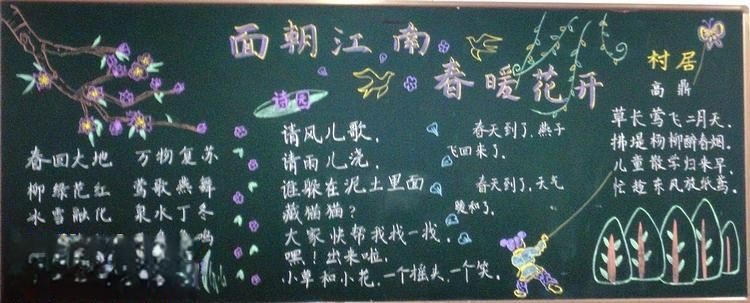 面朝江南
春暖花开
春回大地 万物复苏
柳绿花红 莺歌燕舞
冰雪融化 泉水丁冬
诗园
请风儿歌,
请雨儿浇,
谁躲在泥土里面
藏猫猫?
大家快帮我找一找,
嘿!出来啦,
小草和小花,一个摇头,一个笑。
春天到了,燕子
飞回来了。
春天到了,天气
暖和了。
村居
高鼎
草长莺飞二月天,
拂堤杨柳醉春烟。
儿童散学归来早,
忙趁东风放纸鸢。